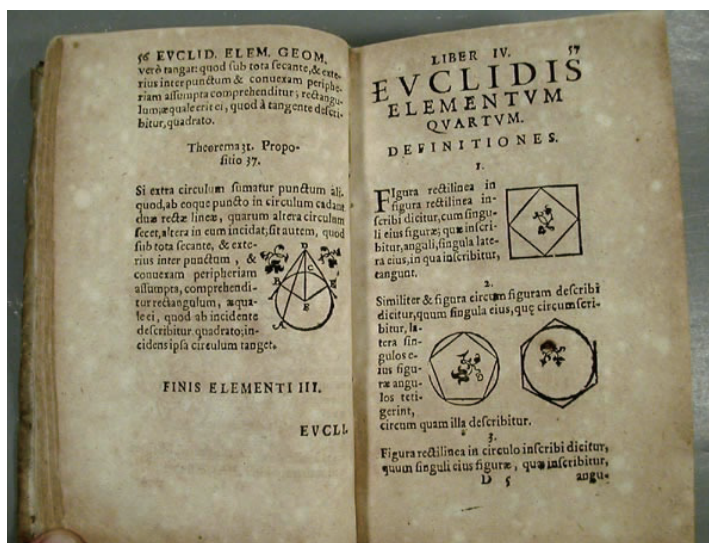 56 EVCLID. ELEM. GEOM.
verò tangat: quod sub tota secante, & exte-
rius inter punctum & conuexam periphe-
riam assumpta comprehenditur, rectangu-
lum, æquale erit ei, quod à tangente descri-
bitur, quadrato.
Theorema 31. Propo-
sitio 37.
Si extra circulum sumatur punctum ali-
quod, ab eoque puncto in circulum cadant
duæ rectæ lineæ, quarum altera circulum
secet, altera in eum incidat; sit autem, quod
sub tota secante, & exte-
rius inter punctum, &
conuexam peripheriam
assumpta, comprehendi-
tur rectangulum, æqua-
le ei, quod ab incidente
describitur quadrato; in-
cidens ipsa circulum tanget.
D
C
B
E
A
FINIS ELEMENTI III.
EVCLI-
LIBER IV. 57
EVCLIDIS
ELEMENTVM
QVARTVM.
DEFINITIONES.
1.
FIgura rectilinea in
figura rectilinea in-
scribi dicitur, cum singu-
li eius figuræ, quæ inscri-
bitur, anguli, singula late-
ra eius, in qua inscribitur,
tangunt.
2.
Similiter & figura circum figuram describi
dicitur, quum singula eius, quę circumscri-
bitur, la-
tera sin-
gulos e-
ius figu-
ræ angu-
los teti-
gerint,
circum quam illa describitur.
3.
Figura rectilinea in circulo inscribi dicitur,
quum singuli eius figuræ, quæ inscribitur,
D 5 angu-